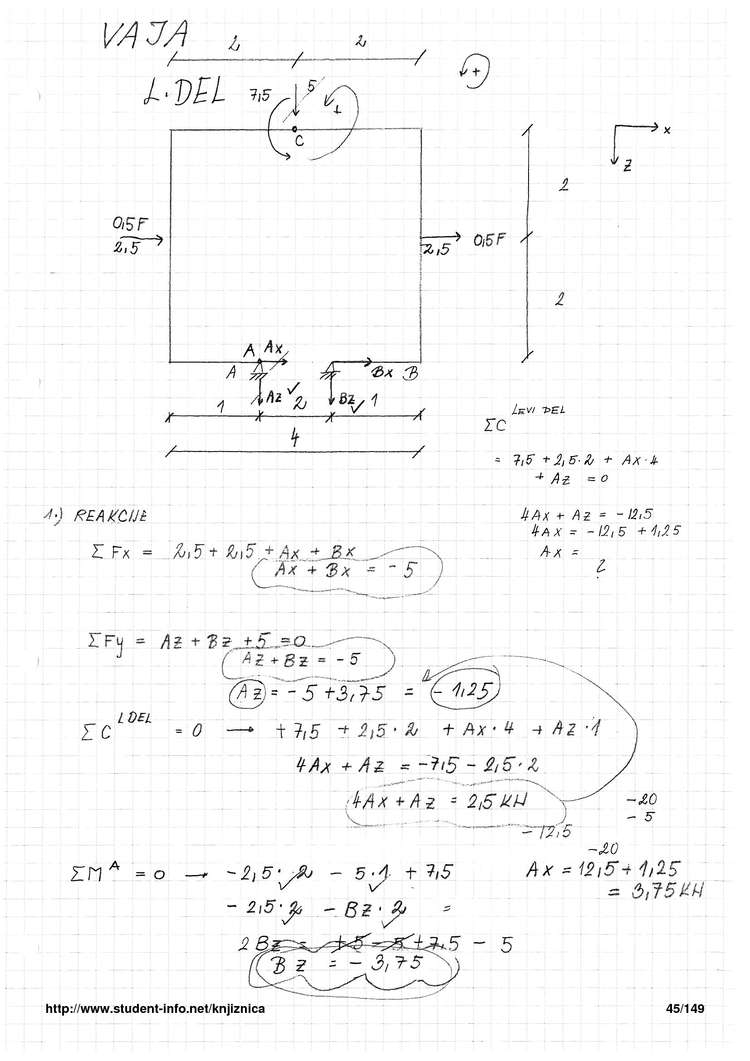 VAJA
2 2
+
L. DEL 7,5 5
+
C
x
z
2
0,5F
2,5
0,5F
2,5
2
A Ax
A Bx B
Az ✓ Bz ✓
1 2 1
4
ΣC LEVI DEL
= 7,5 + 2,5·2 + Ax·4
+ Az = 0
4Ax + Az = -12,5
4Ax = -12,5 + 1,25
Ax =
?
1.) REAKCIJE
ΣFx = 2,5 + 2,5 + Ax + Bx
Ax + Bx = - 5
ΣFy = Az + Bz + 5 = 0
Az + Bz = - 5
Az = - 5 + 3,75 = - 1,25
ΣC L DEL = 0 → + 7,5 + 2,5·2 + Ax·4 + Az·1
4Ax + Az = -7,5 - 2,5·2
4Ax + Az = 2,5 KN
- 12,5
-20
- 5
ΣM A = 0 → - 2,5·2 - 5·1 + 7,5
- 2,5·2 - Bz·2 =
2Bz = +5 - 5 + 7,5 - 5
Bz = - 3,75
-20
Ax = 12,5 + 1,25
= 3,75 KN
http://www.student-info.net/knjiznica 45/149